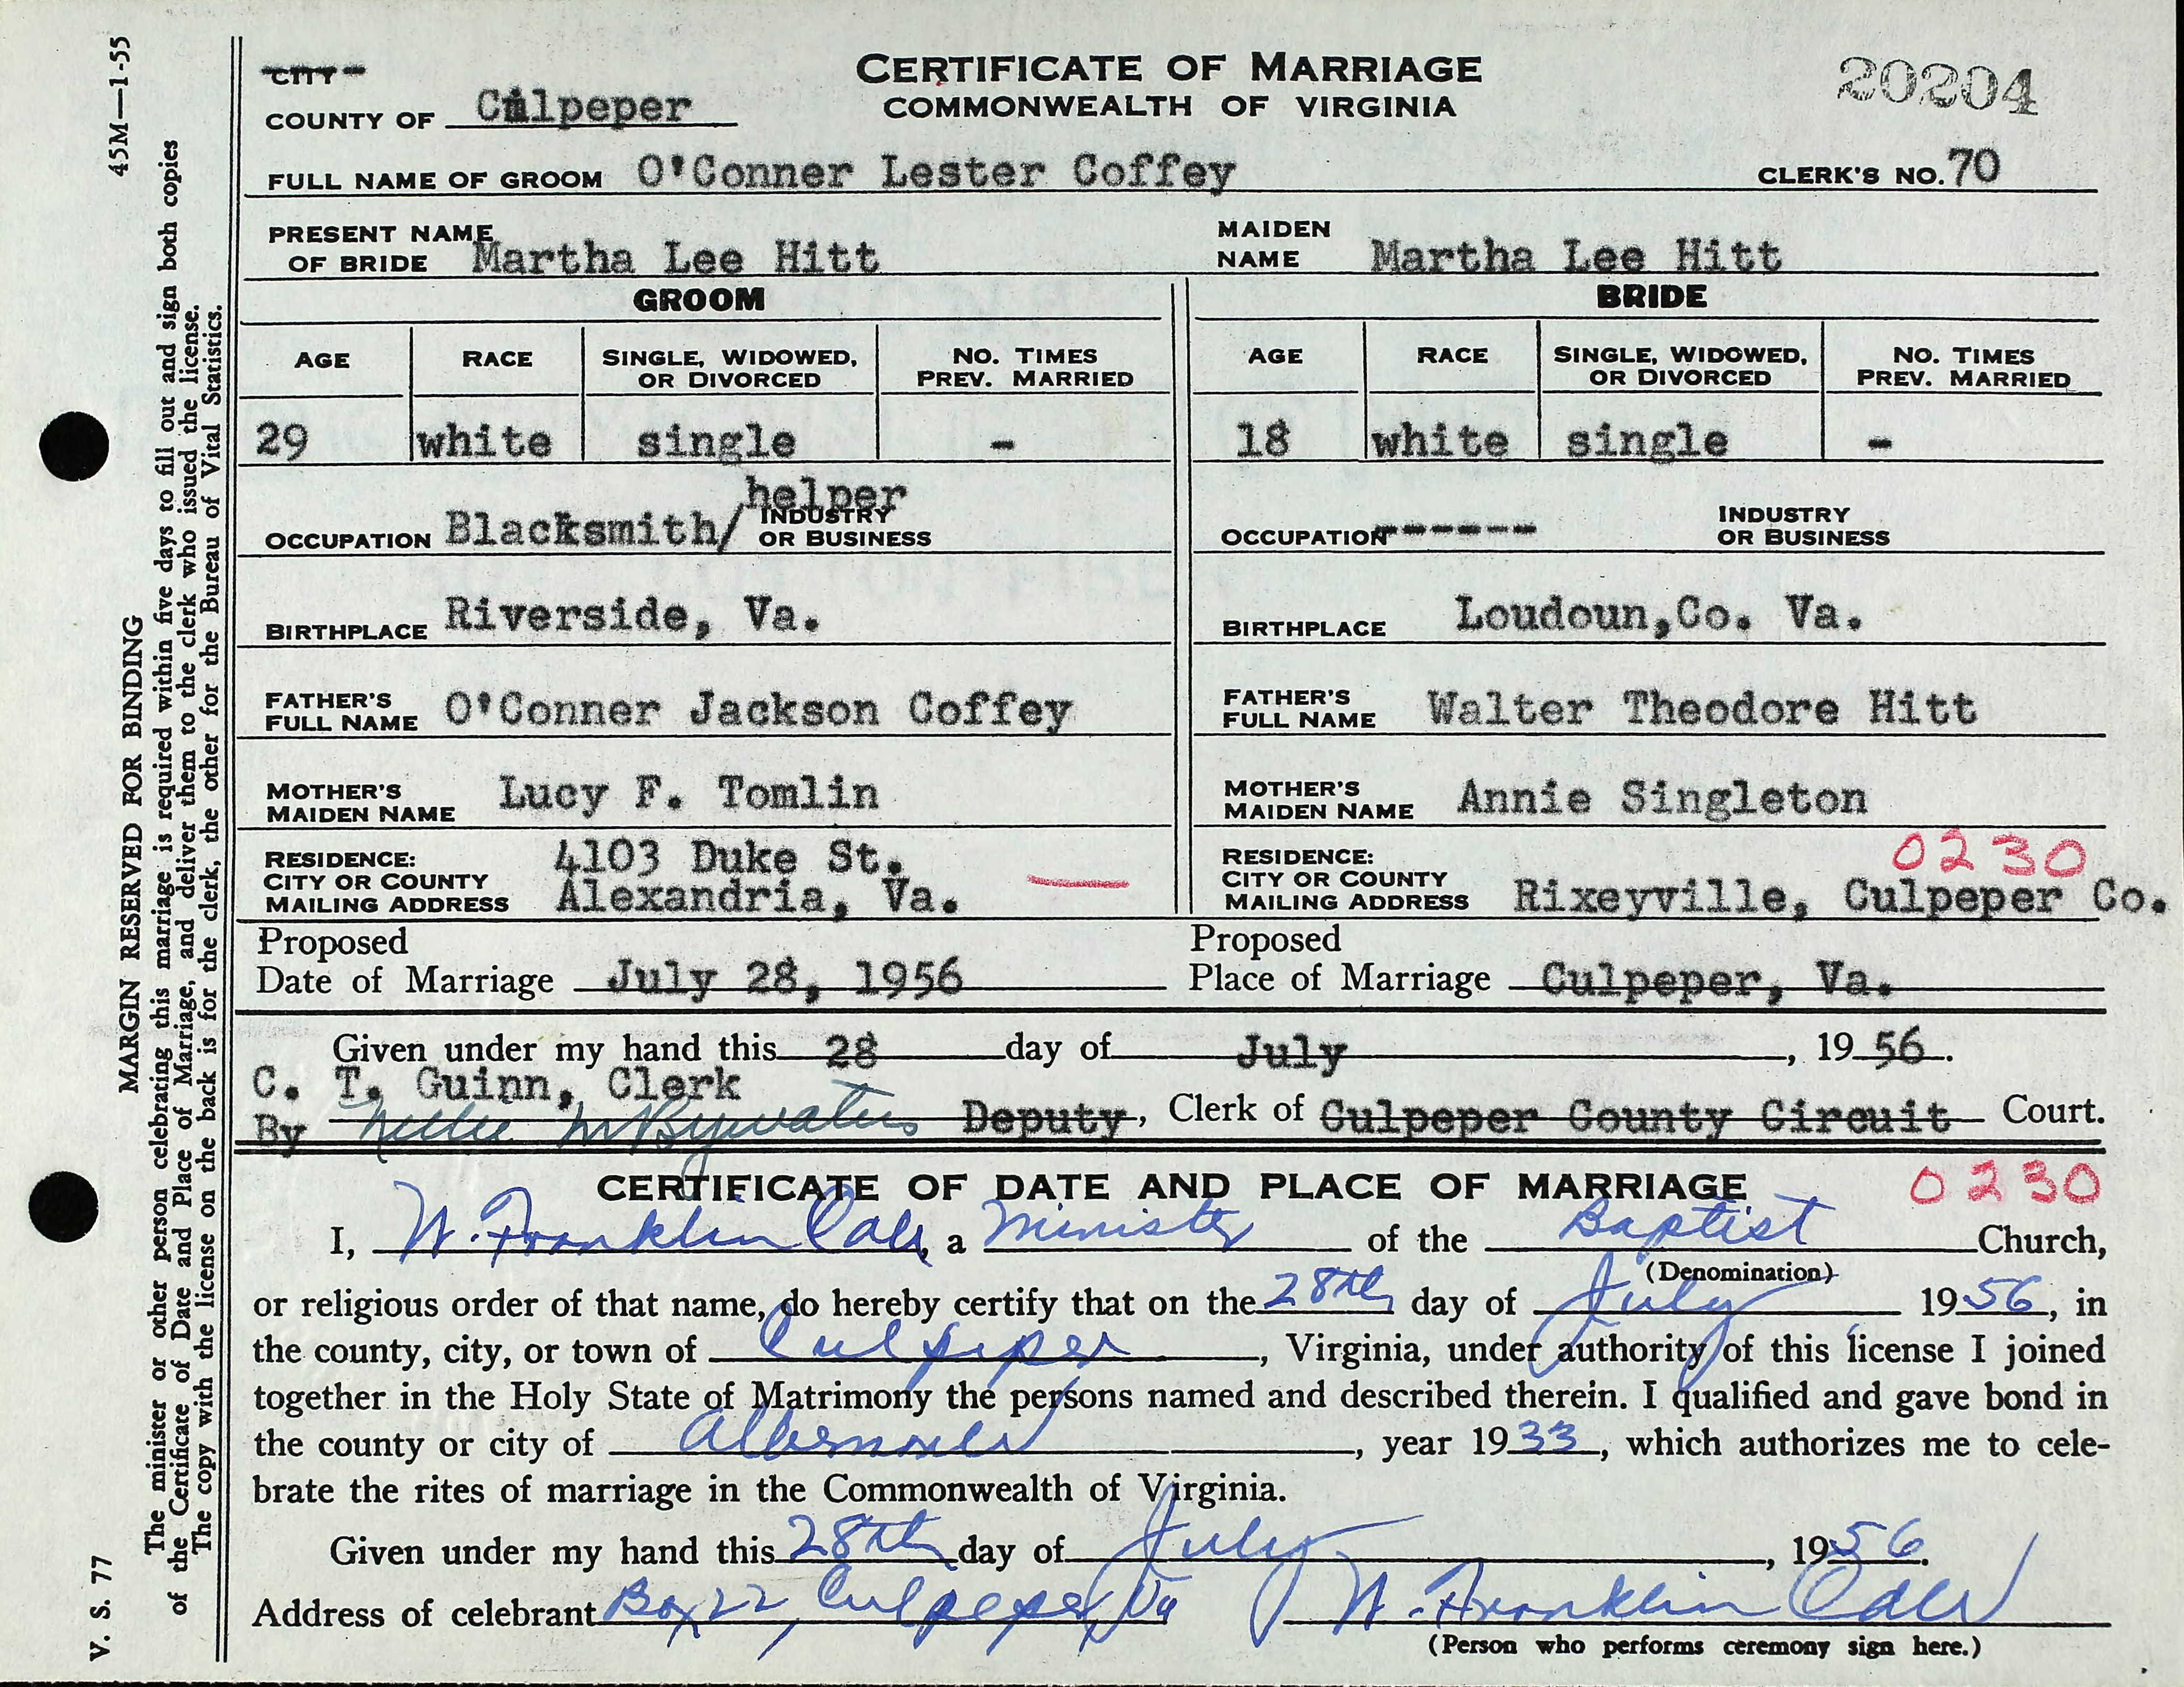 45M—1-55
CITY
CERTIFICATE OF MARRIAGE
20204
COUNTY OF Culpeper
COMMONWEALTH OF VIRGINIA
FULL NAME OF GROOM O'Conner Lester Coffey CLERK'S NO. 70
PRESENT NAME OF BRIDE Martha Lee Hitt MAIDEN NAME Martha Lee Hitt
GROOM BRIDE
AGE RACE SINGLE, WIDOWED, OR DIVORCED NO. TIMES PREV. MARRIED AGE RACE SINGLE, WIDOWED, OR DIVORCED NO. TIMES PREV. MARRIED
29 white single - 18 white single -
OCCUPATION Blacksmith/ helper INDUSTRY OR BUSINESS OCCUPATION ------ INDUSTRY OR BUSINESS
BIRTHPLACE Riverside, Va. BIRTHPLACE Loudoun,Co. Va.
FATHER'S FULL NAME O'Conner Jackson Coffey FATHER'S FULL NAME Walter Theodore Hitt
MOTHER'S MAIDEN NAME Lucy F. Tomlin MOTHER'S MAIDEN NAME Annie Singleton
RESIDENCE: CITY OR COUNTY MAILING ADDRESS 4103 Duke St. Alexandria, Va. RESIDENCE: CITY OR COUNTY MAILING ADDRESS 0230 Rixeyville, Culpeper Co.
Proposed Date of Marriage July 28, 1956 Proposed Place of Marriage Culpeper, Va.
Given under my hand this 28 day of July, 19 56.
C. T. Guinn, Clerk
By Nellie M Bywaters Deputy, Clerk of Culpeper County Circuit Court.
CERTIFICATE OF DATE AND PLACE OF MARRIAGE 0230
I, W. Franklin, a Minister of the Baptist Church,
(Denomination)
or religious order of that name, do hereby certify that on the 28th day of July 1956, in
the county, city, or town of Culpeper, Virginia, under authority of this license I joined
together in the Holy State of Matrimony the persons named and described therein. I qualified and gave bond in
the county or city of Albemarle, year 1933, which authorizes me to cele-
brate the rites of marriage in the Commonwealth of Virginia.
Given under my hand this 28th day of July, 1956.
Address of celebrant Box 22, Culpeper, Va W. Franklin
(Person who performs ceremony sign here.)
MARGIN RESERVED FOR BINDING
The minister or other person celebrating this marriage is required within five days to fill out and sign both copies
of the Certificate of Date and Place of Marriage, and deliver them to the clerk who issued the license.
The copy with the license on the back is for the clerk, the other for the Bureau of Vital Statistics.
V. S. 77